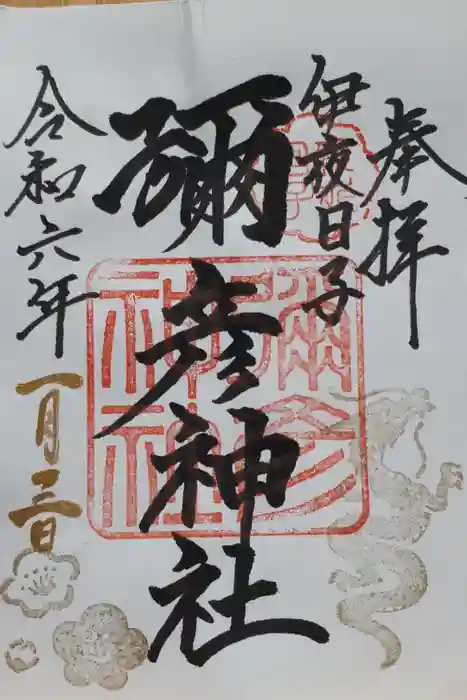 奉拝
伊夜日子
彌彦神社
令和六年
一月三日
彌彦神社